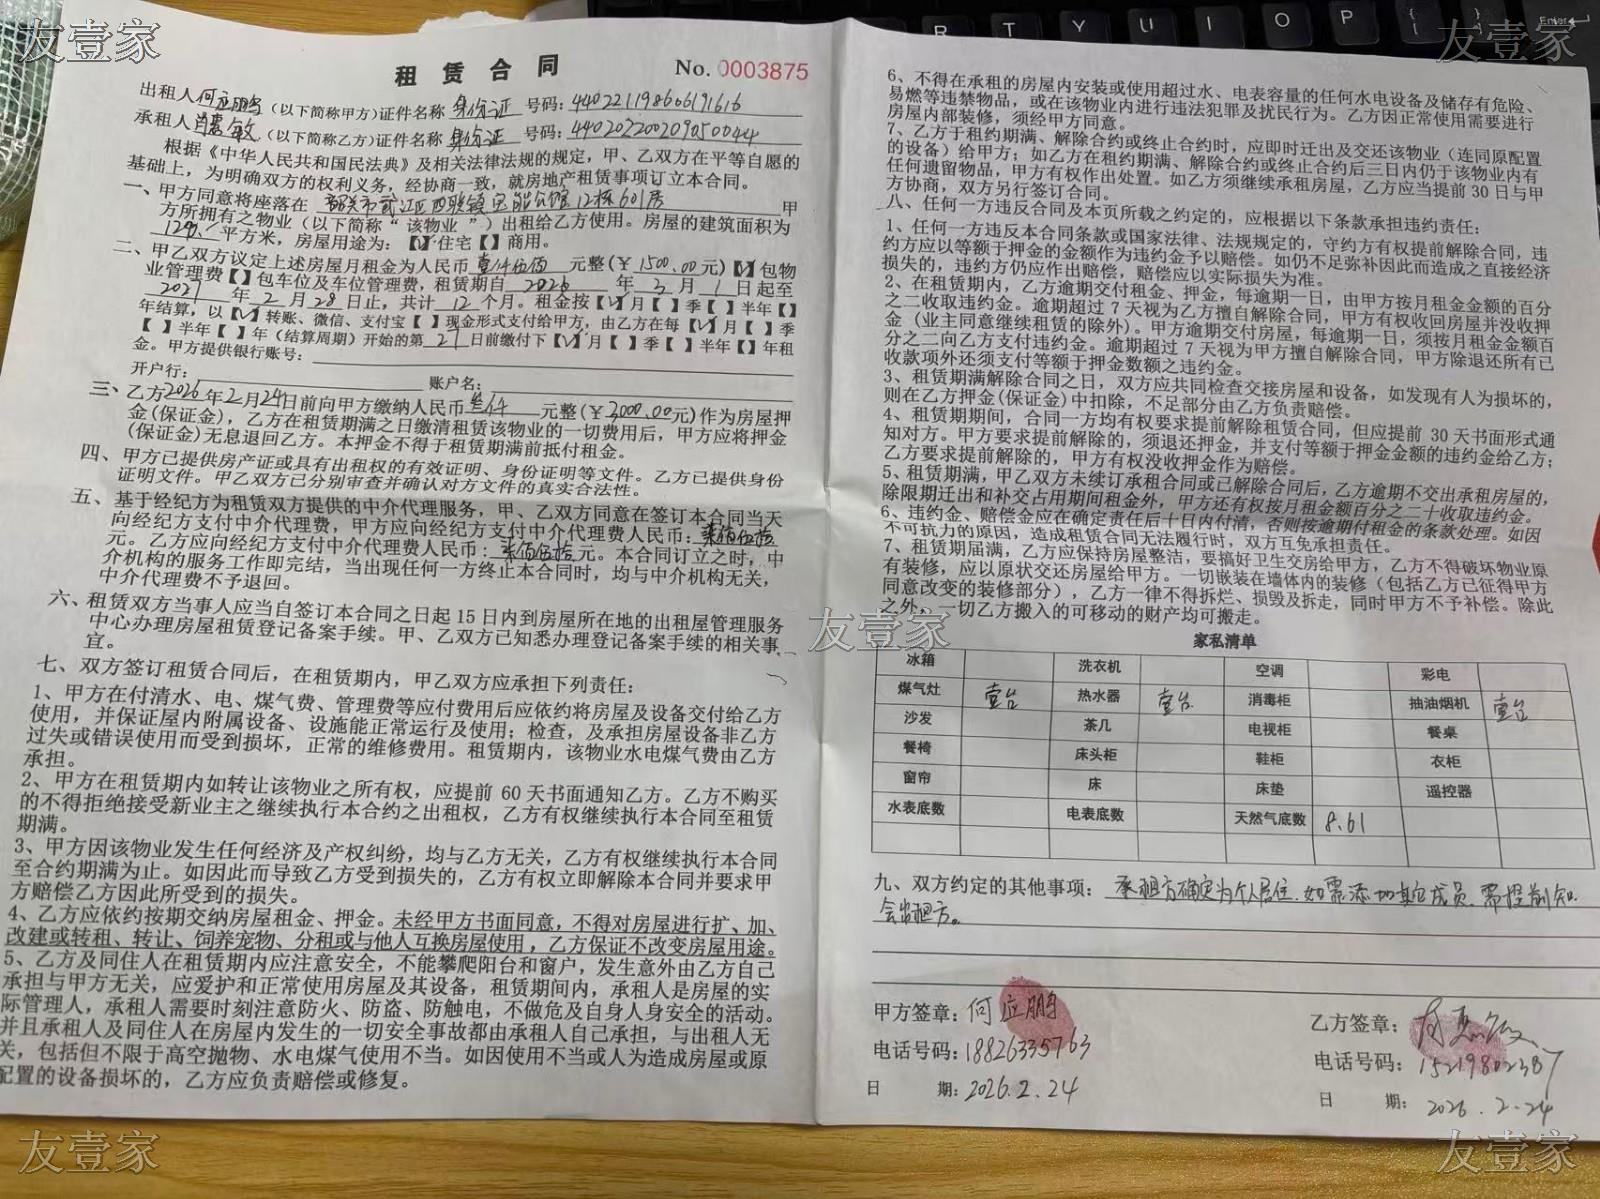 友壹家
友壹家
R T Y U I O P
Enter
租赁合同
No. 0003875
出租人何应鹏（以下简称甲方）证件名称 身份证 号码: 440221198606191616
承租人 敏（以下简称乙方）证件名称 身份证 号码: 440202200209050044
根据《中华人民共和国民法典》及相关法律法规的规定，甲、乙双方在平等自愿的
基础上，为明确双方的权利义务，经协商一致，就房地产租赁事项订立本合同。
一、甲方同意将座落在 韶关市武江区西联镇 公馆12栋601房 甲
方所拥有之物业（以下简称“该物业”）出租给乙方使用。房屋的建筑面积为
平方米，房屋用途为：【√】住宅【 】商用。
二、甲乙双方议定上述房屋月租金为人民币 壹仟伍佰 元整(￥1500.00元)【√】包物
业管理费【 】包车位及车位管理费，租赁期自 2026 年 2 月 1 日起至
2027 年 2 月 28 日止，共计 12 个月。租金按【√】月【 】季【 】半年【 】
年结算，以【√】转账、微信、支付宝【 】现金形式支付给甲方，由乙方在每【√】月【 】季
【 】半年【 】年（结算周期）开始的第 27 日前缴付下【√】月【 】季【 】半年【 】年租
金。甲方提供银行账号：
开户行： 账户名：
三、乙方2026年2月24日前向甲方缴纳人民币 元整(￥3000.00元)作为房屋押
金(保证金)，乙方在租赁期满之日缴清租赁该物业的一切费用后，甲方应将押金
(保证金)无息退回乙方。本押金不得于租赁期满前抵付租金。
四、甲方已提供房产证或具有出租权的有效证明、身份证明等文件。乙方已提供身份
证明文件。甲乙双方已分别审查并确认对方文件的真实合法性。
五、基于经纪方为租赁双方提供的中介代理服务，甲、乙双方同意在签订本合同当天
向经纪方支付中介代理费，甲方应向经纪方支付中介代理费人民币：柒佰伍拾
元。乙方应向经纪方支付中介代理费人民币：柒佰伍拾元。本合同订立之时，中
介机构的服务工作即完结，当出现任何一方终止本合同时，均与中介机构无关，
中介代理费不予退回。
六、租赁双方当事人应当自签订本合同之日起 15 日内到房屋所在地的出租屋管理服务
中心办理房屋租赁登记备案手续。甲、乙双方已知悉办理登记备案手续的相关事
宜。
七、双方签订租赁合同后，在租赁期内，甲乙双方应承担下列责任：
1、甲方在付清水、电、煤气费、管理费等应付费用后应依约将房屋及设备交付给乙方
使用，并保证屋内附属设备、设施能正常运行及使用；检查，及承担房屋设备非乙方
过失或错误使用而受到损坏，正常的维修费用。租赁期内，该物业水电煤气费由乙方
承担。
2、甲方在租赁期内如转让该物业之所有权，应提前 60 天书面通知乙方。乙方不购买
的不得拒绝接受新业主之继续执行本合约之出租权，乙方有权继续执行本合同至租赁
期满。
3、甲方因该物业发生任何经济及产权纠纷，均与乙方无关，乙方有权继续执行本合同
至合约期满为止。如因此而导致乙方受到损失的，乙方有权立即解除本合同并要求甲
方赔偿乙方因此所受到的损失。
4、乙方应依约按期交纳房屋租金、押金。未经甲方书面同意，不得对房屋进行扩、加、
改建或转租、转让、饲养宠物、分租或与他人互换房屋使用，乙方保证不改变房屋用途。
5、乙方及同住人在租赁期内应注意安全，不能攀爬阳台和窗户，发生意外由乙方自己
承担与甲方无关，应爱护和正常使用房屋及其设备，租赁期间内，承租人是房屋的实
际管理人，承租人需要时刻注意防火、防盗、防触电，不做危及自身人身安全的活动。
并且承租人及同住人在房屋内发生的一切安全事故都由承租人自己承担，与出租人无
关，包括但不限于高空抛物、水电煤气使用不当。如因使用不当或人为造成房屋或原
配置的设备损坏的，乙方应负责赔偿或修复。
6、不得在承租的房屋内安装或使用超过水、电表容量的任何水电设备及储存有危险、
易燃等违禁物品，或在该物业内进行违法犯罪及扰民行为。乙方因正常使用需要进行
房屋内部装修，须经甲方同意。
7、乙方于租约期满、解除合约或终止合约时，应即时迁出及交还该物业（连同原配置
的设备）给甲方；如乙方在租约期满、解除合约或终止合约后三日内仍于该物业内有
任何遗留物品，甲方有权作出处置。如乙方须继续承租房屋，乙方应当提前 30 日与甲
方协商，双方另行签订合同。
八、任何一方违反合同及本页所载之约定的，应根据以下条款承担违约责任：
1、任何一方违反本合同条款或国家法律、法规规定的，守约方有权提前解除合同，违
约方应以等额于押金的金额作为违约金予以赔偿。如仍不足弥补因此而造成之直接经济
损失的，违约方仍应作出赔偿，赔偿应以实际损失为准。
2、在租赁期内，乙方逾期交付租金、押金，每逾期一日，由甲方按月租金金额的百分
之二收取违约金。逾期超过 7 天视为乙方擅自解除合同，甲方有权收回房屋并没收押
金（业主同意继续租赁的除外)。甲方逾期交付房屋，每逾期一日，须按月租金金额百
分之二向乙方支付违约金。逾期超过 7 天视为甲方擅自解除合同，甲方除退还所有已
收款项外还须支付等额于押金数额之违约金。
3、租赁期满解除合同之日，双方应共同检查交接房屋和设备，如发现有人为损坏的，
则在乙方押金(保证金)中扣除，不足部分由乙方负责赔偿。
4、租赁期期间，合同一方均有权要求提前解除租赁合同，但应提前 30 天书面形式通
知对方。甲方要求提前解除的，须退还押金，并支付等额于押金金额的违约金给乙方；
乙方要求提前解除的，甲方有权没收押金作为赔偿。
5、租赁期满，甲乙双方未续订承租合同或已解除合同后，乙方逾期不交出承租房屋的，
除限期迁出和补交占用期间租金外，甲方还有权按月租金额百分之二十收取违约金。
6、违约金、赔偿金应在确定责任后十日内付清，否则按逾期付租金的条款处理。如因
不可抗力的原因，造成租赁合同无法履行时，双方互免承担责任。
7、租赁期届满，乙方应保持房屋整洁，要搞好卫生交房给甲方，乙方不得破坏物业原
有装修，应以原状交还房屋给甲方。一切嵌装在墙体内的装修（包括乙方已征得甲方
同意改变的装修部分），乙方一律不得拆烂、损毁及拆走，同时甲方不予补偿。除此
之外，一切乙方搬入的可移动的财产均可搬走。
友壹家
家私清单
冰箱 洗衣机 空调 彩电
煤气灶 壹台 热水器 壹台 消毒柜 抽油烟机 壹台
沙发 茶几 电视柜 餐桌
餐椅 床头柜 鞋柜 衣柜
窗帘 床 床垫 遥控器
水表底数 电表底数 天然气底数 8.61
九、双方约定的其他事项：承租方确定为个人居住，如需添加其它成员，需提前知
会出租方。
甲方签章：何应鹏
电话号码：18826335763
日 期：2026.2.24
乙方签章：
电话号码：15219802387
日 期：2026.2.24
友壹家
友壹家